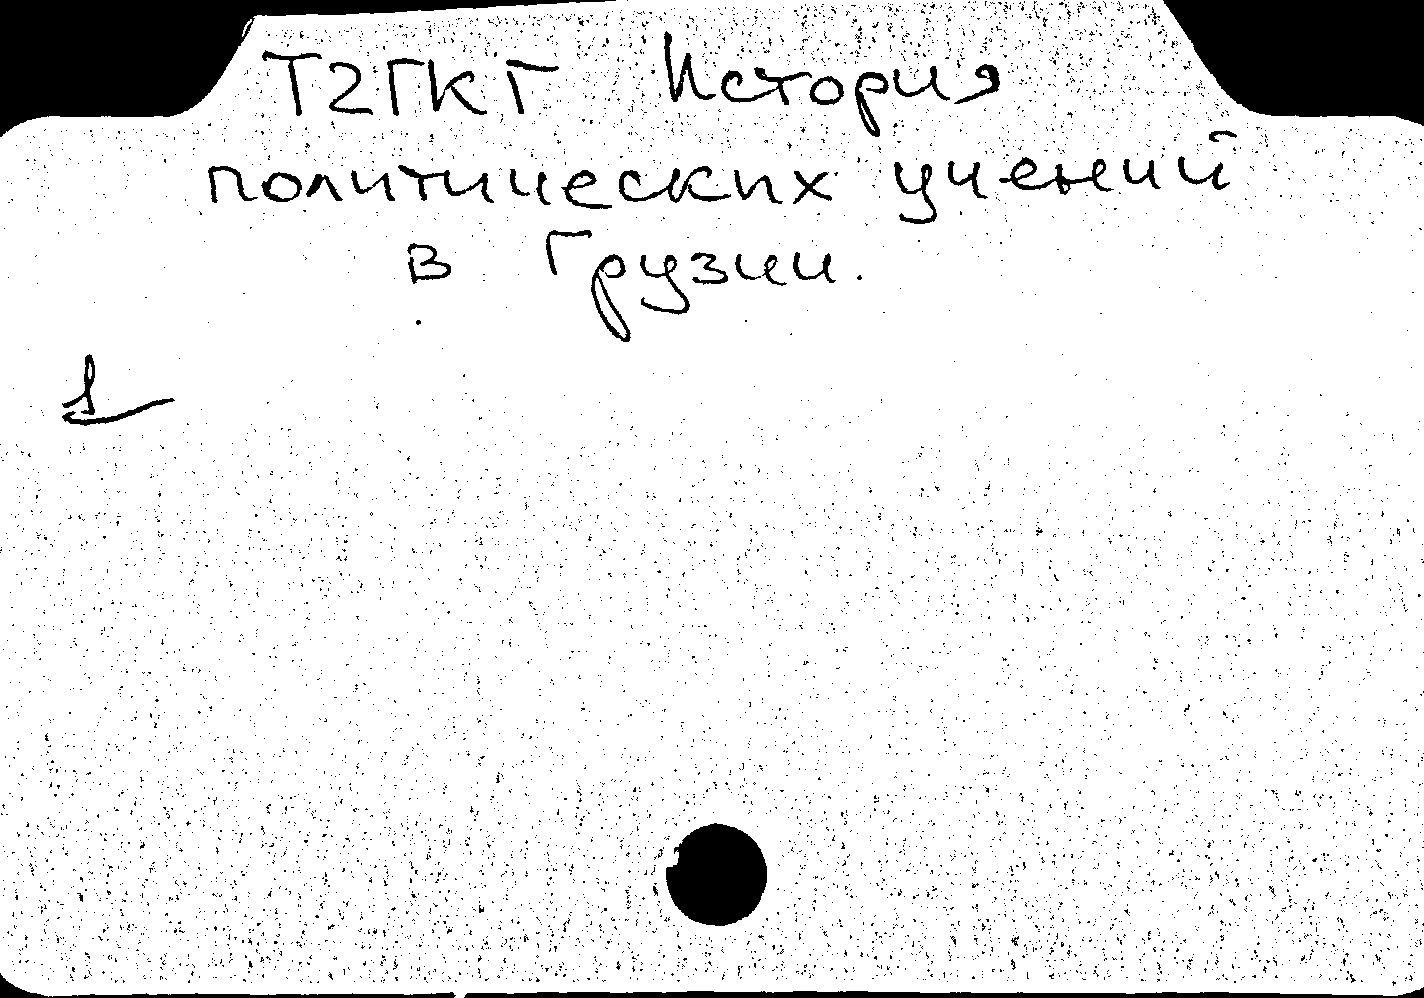 Т2ГКГ История
политических учений
в Грузии.
1